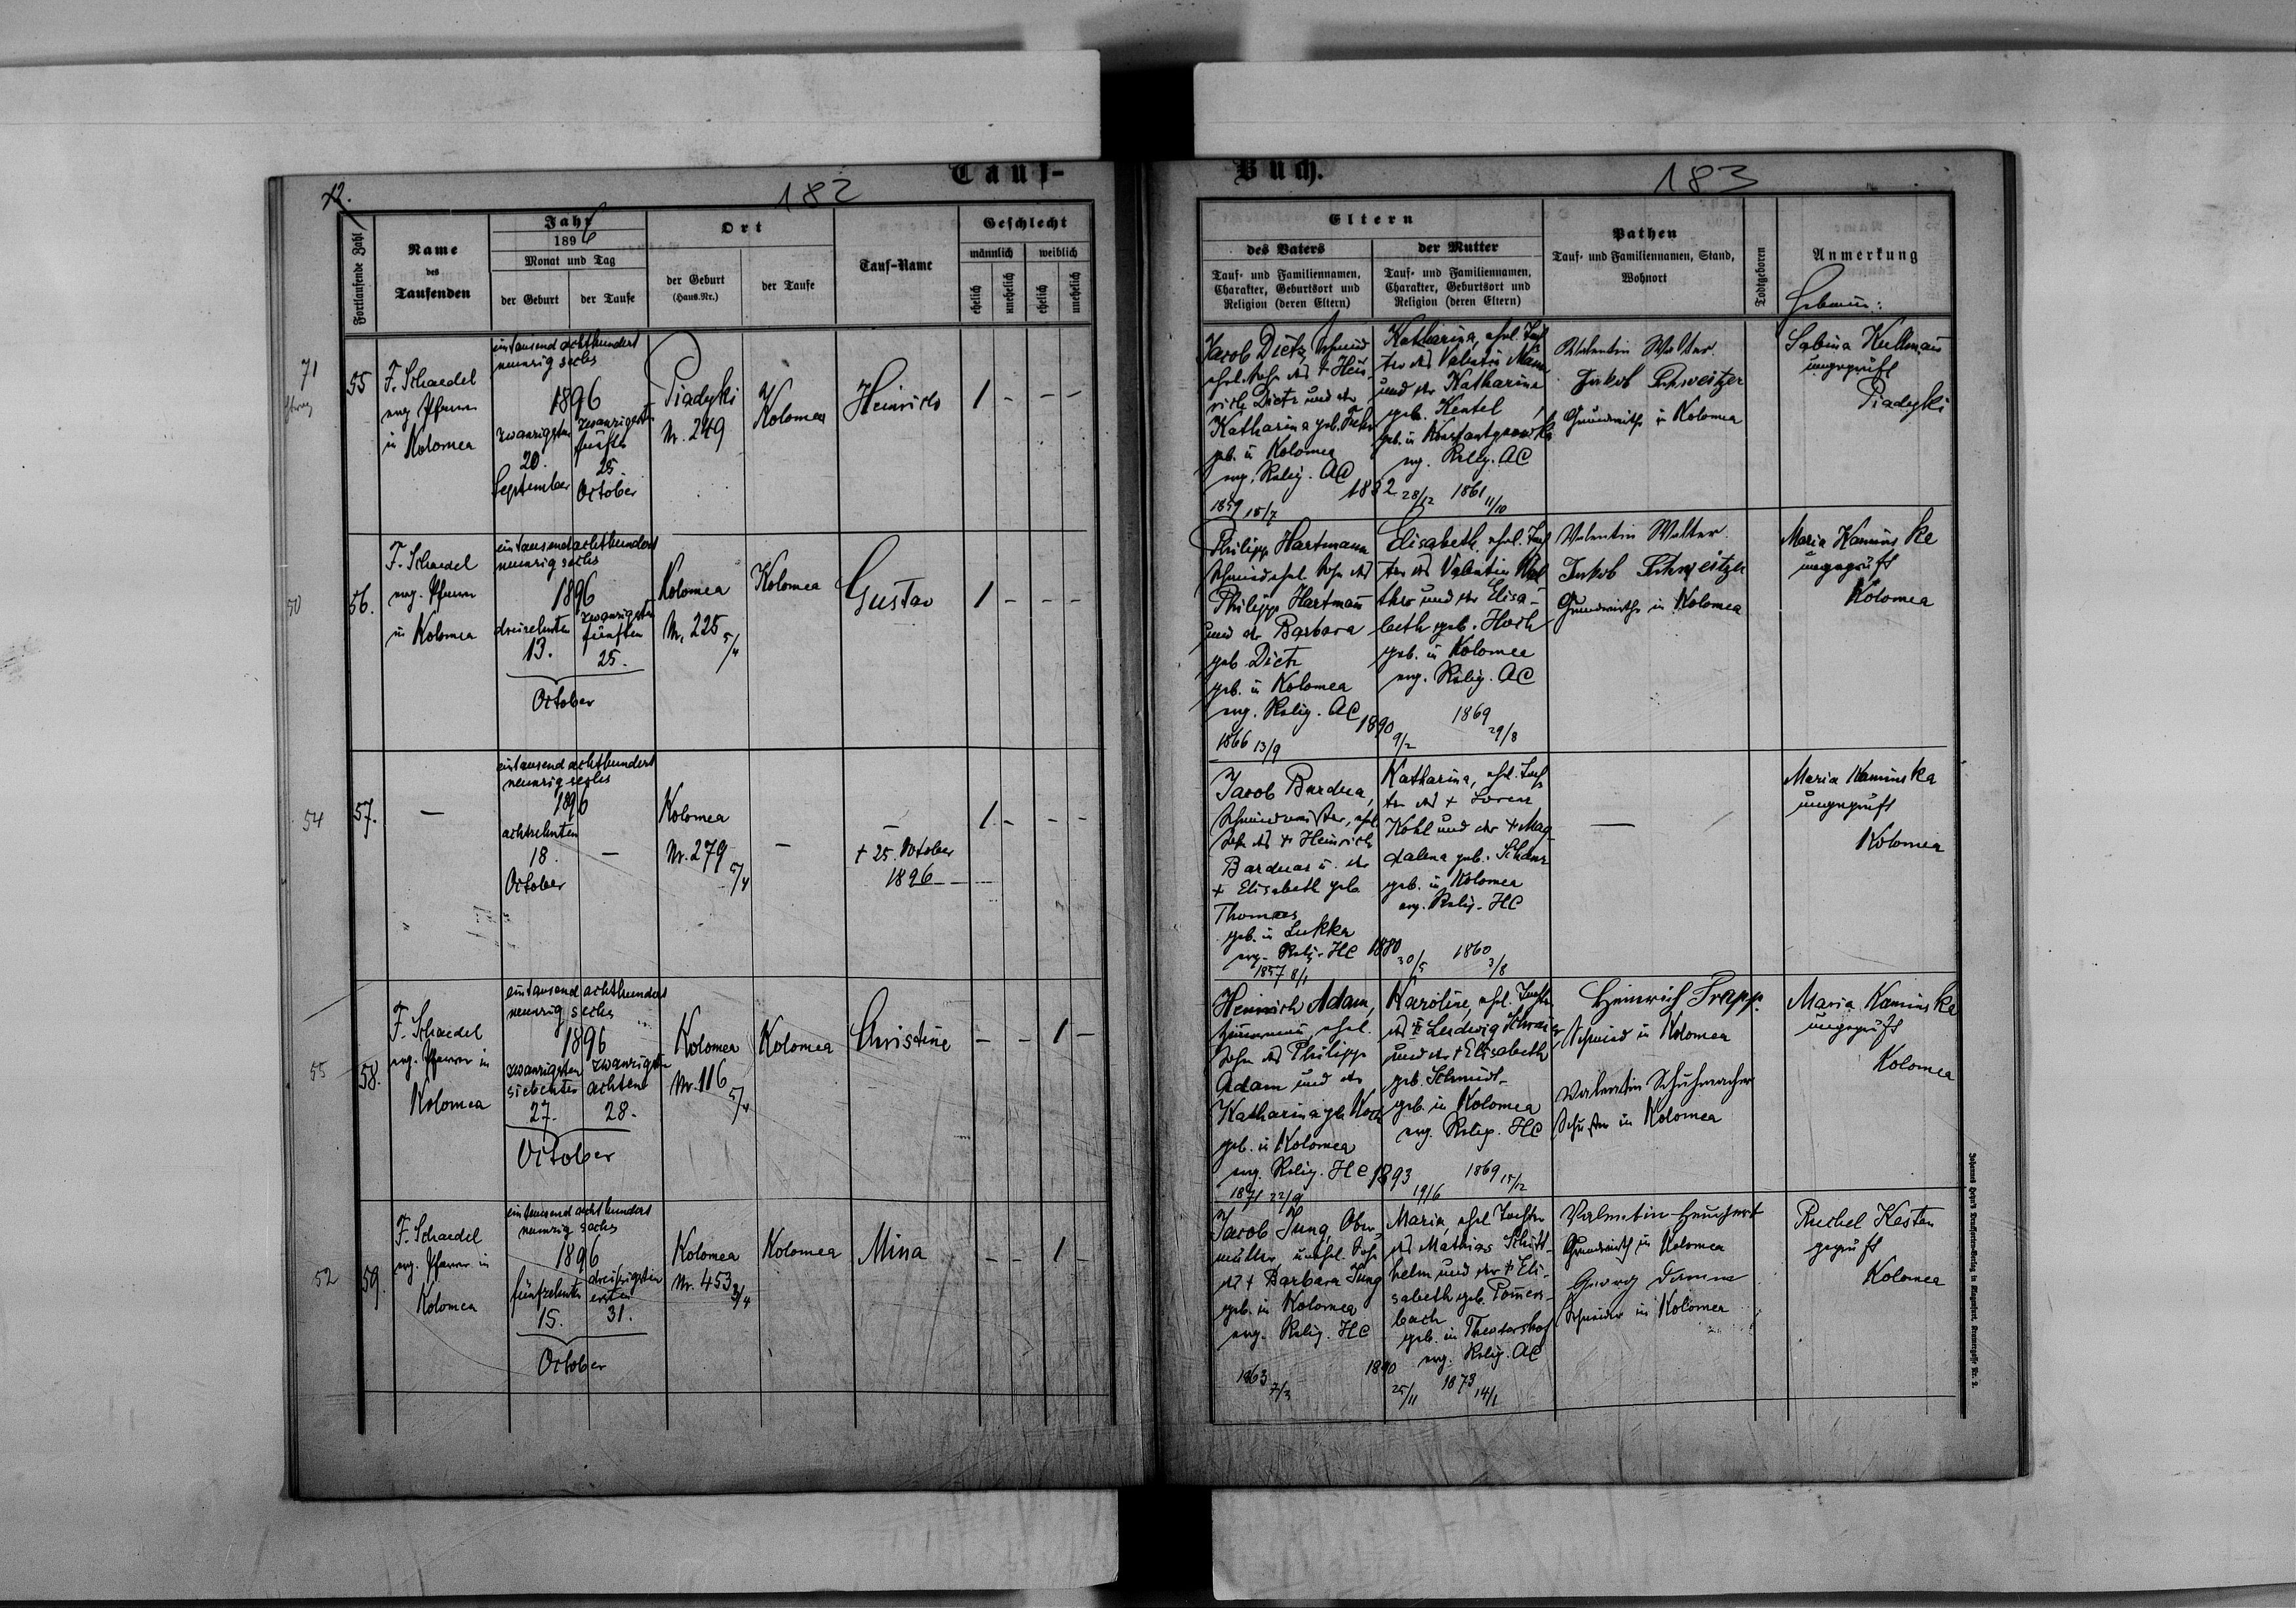 Tauf-
Buch.
182
183
12.
Fortlaufende Zahl
Name
des
Taufenden
Jahr
1896
Monat und Tag
der Geburt
der Taufe
Ort
der Geburt
(Haus.Nr.)
der Taufe
Tauf-Name
Geschlecht
männlich
weiblich
ehelich
unehelich
ehelich
unehelich
Eltern
des Vaters
Tauf- und Familiennamen,
Charakter, Geburtsort und
Religion (deren Eltern)
der Mutter
Tauf- und Familiennamen,
Charakter, Geburtsort und
Religion (deren Eltern)
Pathen
Tauf- und Familiennamen, Stand,
Wohnort
Todtgeboren
Anmerkung
Hebamme:
71
55
F. Schaedel
evg. Pfarrer
in Kolomea
eintausend achthundert
neunzig sechs
1896
zwanzigsten
20.
September
zwanzigsten
fünften
25.
October
Piadyki
Nr. 249
Kolomea
Heinrich
1 - - -
Jacob Dietz, Schmied
ehel. Sohn des + Hein-
rich Dietz und der
Katharina geb.
geb. in Kolomea
evg. Relig. AC
1859 15/7
1882 28/12
Katharina, ehel. Toch
ter des Valentin
und der Katharina
geb. Kentel
geb. in
evg. Relig. AC
1861 11/10
Valentin Walter
Jakob Schweitzer
Grundwirthe in Kolomea
Sabina Kullman
ungeprüft
Piadyki
50
56.
F. Schaedel
evg. Pfarrer
in Kolomea
eintausend achthundert
neunzig sechs
1896
dreizehnten
13.
zwanzigsten
fünften
25.
October
Kolomea
Nr. 225 5/4
Kolomea
Gustav
1 - - -
Philipp Hartmann
Schmied ehel. Sohn des
Philipp Hartmañ
und der Barbara
geb. Dietz
geb. in Kolomea
evg. Relig. AC
1866 13/9
1890 9/2
Elisabeth, ehel. Toch
ter des Valentin Wal
ther und der Elisa-
beth geb. Hoch
geb. in Kolomea
evg. Relig. AC
1869 29/8
Valentin Walter
Jakob Schweitzer
Grundwirthe in Kolomea
Maria Kaminske
ungeprüft
Kolomea
54
57.
-
eintausend achthundert
neunzig sechs
1896
achtzehnten
18.
October
-
Kolomea
Nr. 279 5/4
-
-
+ 25. October
1896
1 - - -
Jacob Bardua,
Schmiedmeister, ehel.
Sohn des + Heinrich
Barduas u. der
+ Elisabeth geb
Thomas
geb. in Lukka
evg. Relig. HC
1857 8/1
1880 30/5
Katharina, ehel. Toch
ter des + Lorenz
Kohl und der + Mag-
dalena geb.
geb. in Kolomea
evg. Relig. HC
1860 3/8
-
Maria Kaminska
ungeprüft
Kolomea
55
58.
F. Schaedel
evg. Pfarrer in
Kolomea
eintausend achthundert
neunzig sechs
1896
zwanzigsten
siebenten
27.
zwanzigsten
achten
28.
October
Kolomea
Nr. 116 5/4
Kolomea
Christine
- - 1 -
Heinrich Adam,
ehel.
Sohn des Philipp
Adam und der
Katharina geb Koch
geb. in Kolomea
evg. Relig. HC
1871 22/9
1893 19/6
Karoline, ehel. Tochter
des + Ludwig
und der + Elisabeth
geb. Schmidt
geb. in Kolomea
evg. Relig. HC
1869 15/12
Heinrich Trapp
Schmied in Kolomea
Valentin Schuhmacher
Schuster in Kolomea
Maria Kaminska
ungeprüft
Kolomea
52
59.
F. Schaedel
evg. Pfarrer in
Kolomea
eintausend achthundert
neunzig sechs
1896
fünfzehnten
15.
dreißigsten
ersten
31.
October
Kolomea
Nr. 453 3/4
Kolomea
Mina
- - 1 -
Jacob Jung, Ober-
müller, unehel. Sohn
der + Barbara Jung
geb. in Kolomea
evg. Relig. HC
1863 7/3
1890 25/11
Maria, ehel Tochter
des Mathias Schitt-
helm und der + Eli-
sabeth geb. Pom̃ers-
bach
geb. in Theodorshof
evg. Relig. AC
1873 14/1
Valentin Heuchert
Grundwirth in Kolomea
Georg Damm
Schneider in Kolomea
Ruchel Kesten
geprüft
Kolomea